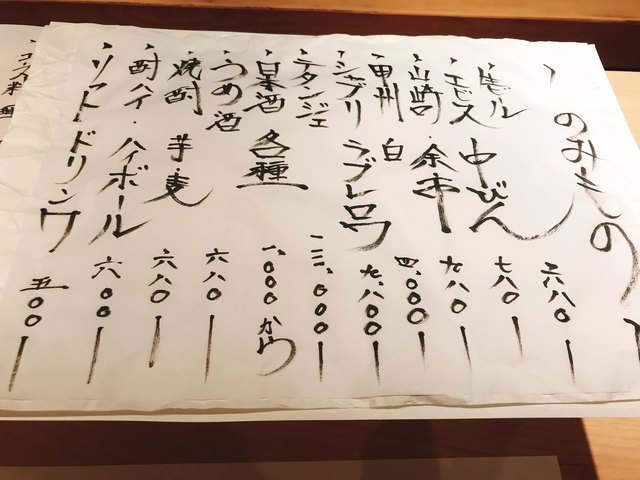 〜のみもの〜
・生ビール 六八〇ー
・エビス 中びん 七八〇ー
・山崎・余市 九八〇ー
・甲州 白 四、〇〇〇ー
・シャブリ ラブレロワ 九、八〇〇ー
・テタンジェ 一二、〇〇〇ー
・日本酒 各種 一、〇〇〇から
・うめ酒 六八〇ー
・焼酎 芋・麦 六八〇ー
・酎ハイ・ハイボール 六〇〇ー
・ソフトドリンク 五〇〇ー